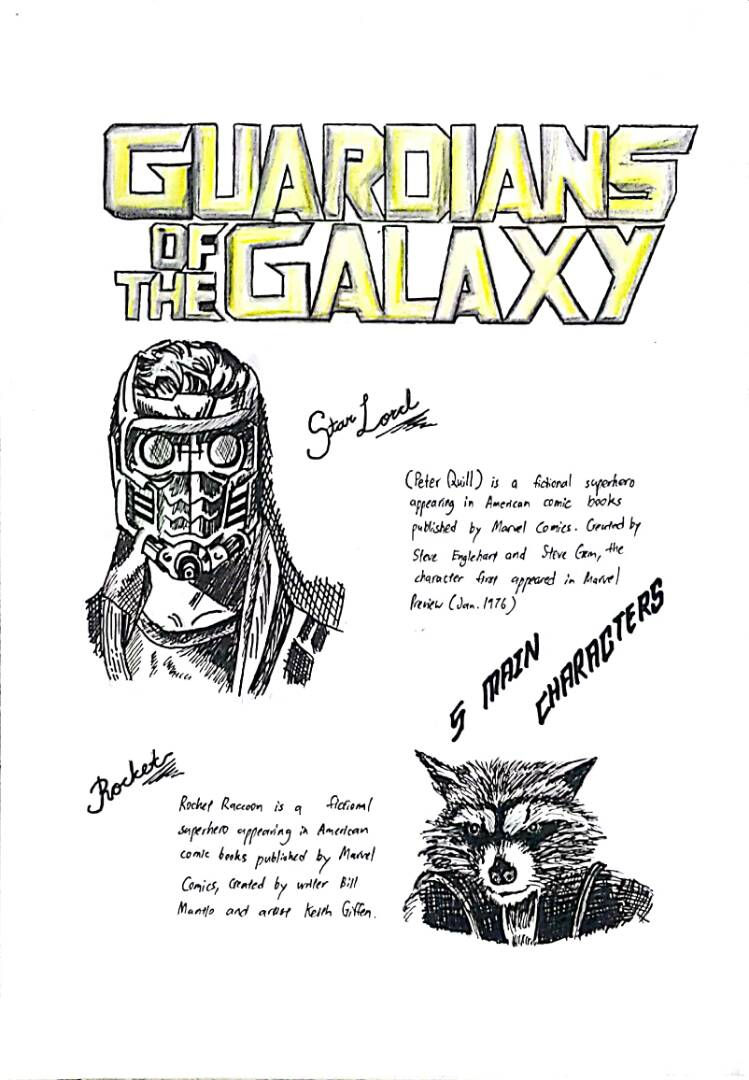 GUARDIANS
OF
THE GALAXY
Star Lord
(Peter Quill) is a fictional superhero
appearing in American comic books
published by Marvel Comics. Created by
Steve Englehart and Steve Gan, the
character first appeared in Marvel
Preview (Jan. 1976)
5 MAIN
CHARACTERS
Rocket
Rocket Raccoon is a fictional
superhero appearing in American
comic books published by Marvel
Comics, created by writer Bill
Mantlo and artist Keith Giffen.